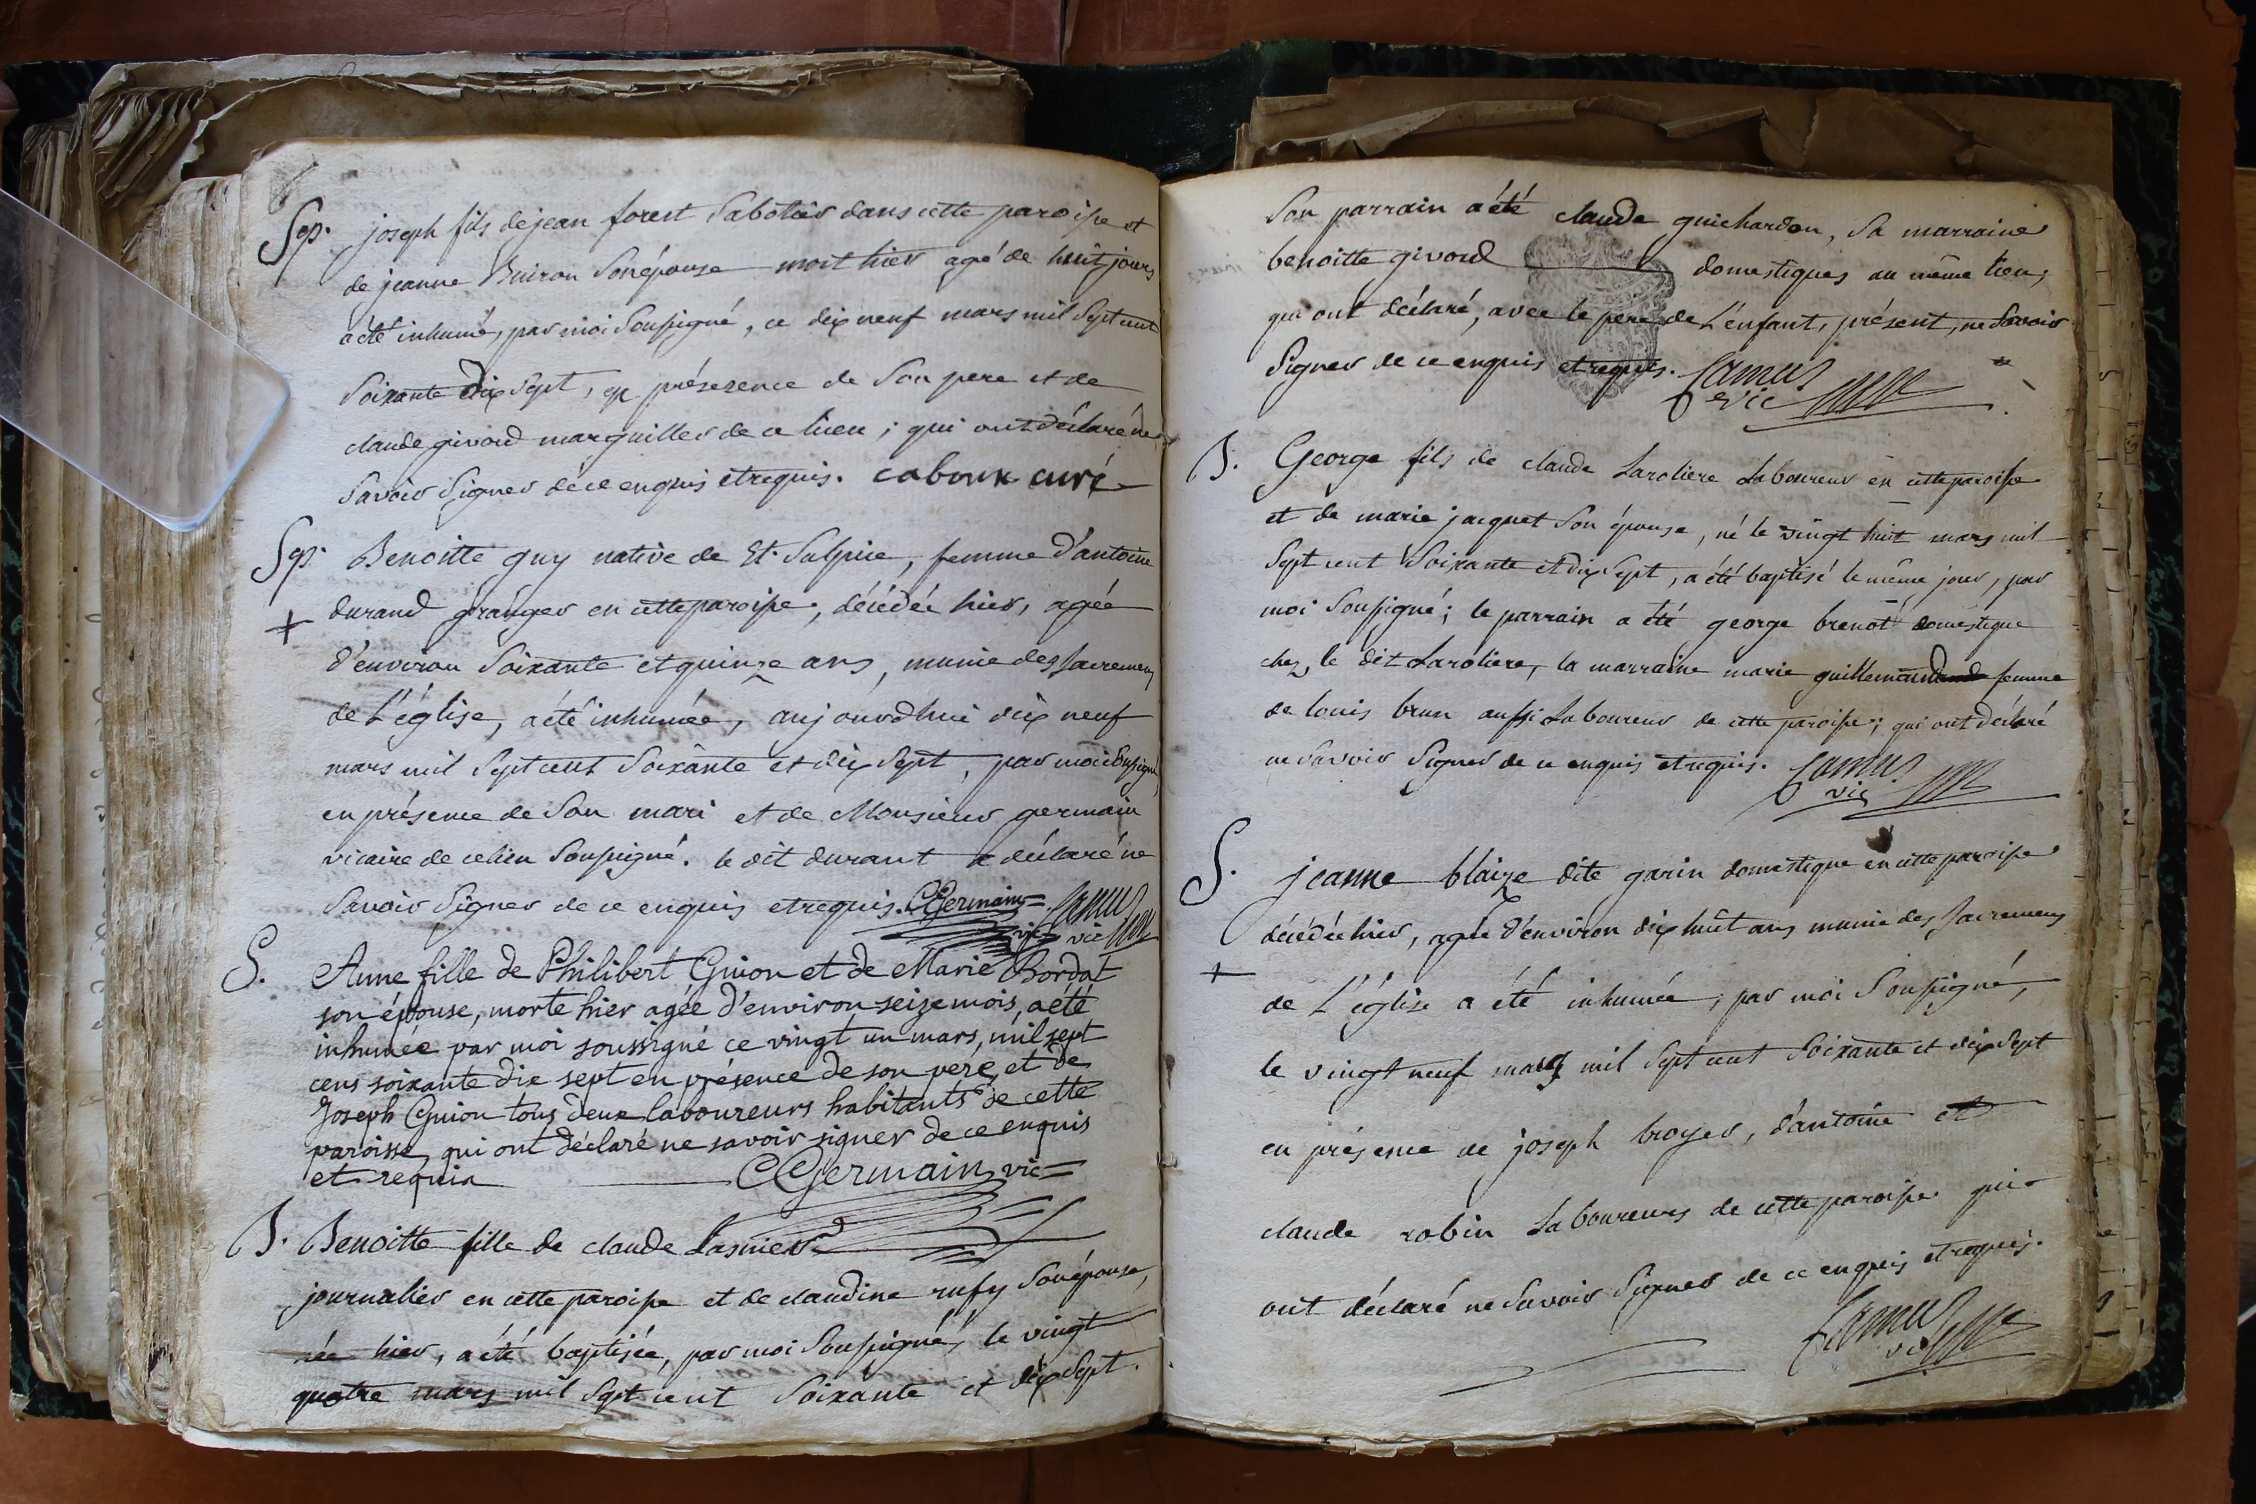 Sep. joseph fils de jean forest Sabotier dans cette paroisse et
de jeanne Buiron Son épouse mort hier agé de huit jours
a été inhumé, par moi Soussigné, ce dix neuf mars mil Sept cent
Soixante dix Sept, en présezence de Son pere et de
claude givord marguiller de ce lieu ; qui ont déclaré ne
Savoir Signer de ce enquis et requis. caboux curé
Sep. Benoitte guy native de St. Sulpice, femme d'antoine
+ durand granger en cette paroisse, décédée hier, agée
d'environ Soixante et quinze ans, munie des Sacremens
de L'église, a été inhumée, aujourd'hui dix neuf
mars mil Sept cent Soixante et dix Sept, par moi Soussigné,
en présence de Son mari et de Monsieur germain
vicaire de ce lieu Soussigné. le dit durant a déclaré ne
Savoir Signer de ce enquis et requis. CGermain vic Camus vic
S. Anne fille de Philibert Guion et de Marie Bordat
son épouse, morte hier agée d'environ seize mois, a été
inhumée par moi soussigné ce vingt un mars, mil sept
cens soixante dix sept en présence de son pere, et de
Joseph Guion tous deux laboureurs habitants de cette
paroisse, qui ont déclaré ne savoir signer de ce enquis
et requis CGermain vic
B. Benoitte fille de claude Lasnier
journalier en cette paroisse et de claudine rufy Son épouse,
née hier, a été baptisée, par moi Soussigné, le vingt
quatre mars mil Sept cent Soixante et dix Sept.
Son parrain a été claude guichardon, Sa marraine
benoitte givord domestiques au même lieu,
qui ont déclaré, avec le pere de L'enfant, présent, ne Savoir
Signer de ce enquis et requis. Camus
vic
B. George fils de claude Laroliere Laboureur en cette paroisse
et de marie jacquet Son épouse, né le vingt huit mars mil
Sept cent Soixante et dix Sept, a été baptisé le même jour, par
moi Soussigné ; le parrain a été george brenot domestique
chez le dit Laroliere, la marraine marie femme
de louis brun aussi Laboureur de cette paroisse ; qui ont déclaré
ne Savoir Signer de ce enquis et requis. Camus
vic
S. jeanne blaize dite garin domestique en cette paroisse
décédée hier, agée d'environ dix huit ans munie des Sacremens
+ de L'église a été inhumée, par moi Soussigné,
le vingt neuf mars mil Sept cent Soixante et dix Sept
en présence de joseph broyer, d'antoine et
claude robin Laboureurs de cette paroisse qui
ont déclaré ne Savoir Signer de ce enquis et requis.
Camus
vic